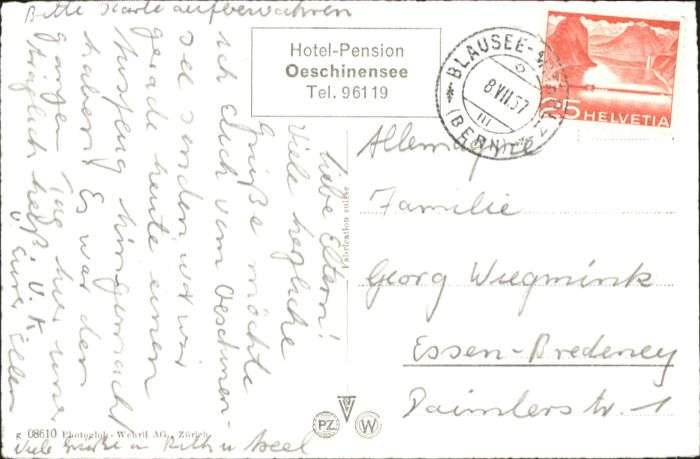 Bitte Karte aufbewahren
Hotel-Pension
Oeschinensee
Tel. 96119
BLAUSEE-MITHOLZ
8.VII.57
(BERN)
5 HELVETIA
Liebe Eltern!
Viele herzliche
Grüße möchte
ich Euch vom Oeschinen-
see senden, wo wir
gerade heute einen
Ausflug hingemacht
haben. Es war den
ganzen Tag hier
täglich heiß. V. K.
Eure Ellen
Viele Grüße an Ruth u Axel
Allemagne
Familie
Georg Wiegmink
Essen-Bredeney
Daimlerstr. 1
Fabrication suisse
PZ
W
g 08610 Photoglob-Wehrli AG., Zürich